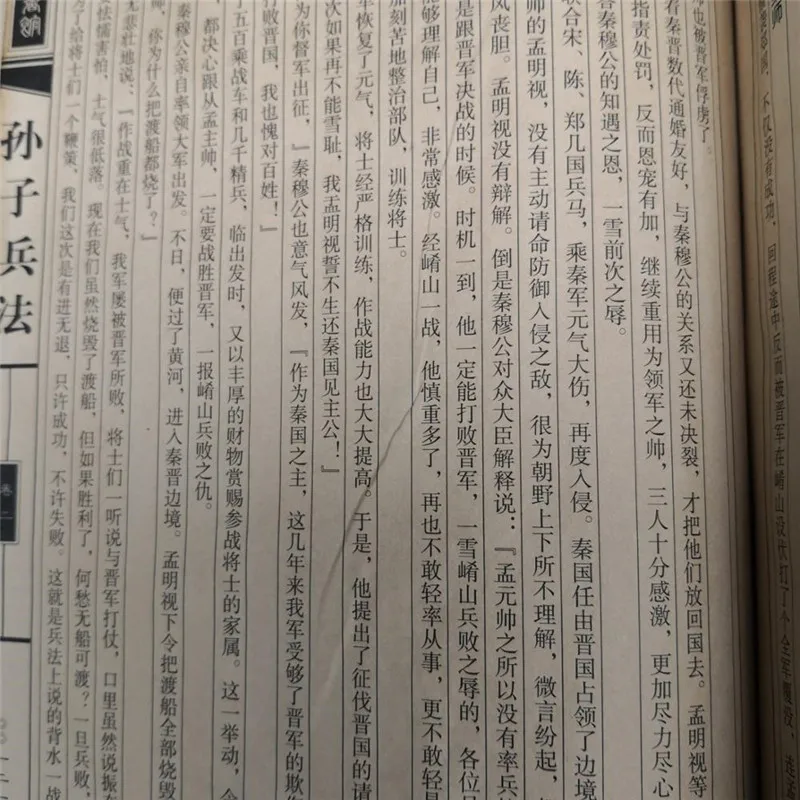 师
不仅没有成功，回程途中反而被晋军在崤山设伏打了个全军覆没，连孟
也被晋军俘虏了。
看秦晋数代通婚友好，与秦穆公的关系又还未决裂，才把他们放回国去。孟明视等
指责处罚，反而恩宠有加，继续重用为领军之帅，三人十分感激，更加尽力尽心
秦穆公的知遇之恩，一雪前次之辱。
联合宋、陈、郑几国兵马，乘秦军元气大伤，再度入侵。秦国任由晋国占领了边境
帅的孟明视，没有主动请命防御入侵之敌，很为朝野上下所不理解，微言纷起，
风丧胆。孟明视没有辩解。倒是秦穆公对众大臣解释说：『孟元帅之所以没有率兵
是跟晋军决战的时候。时机一到，他一定能打败晋军，一雪崤山兵败之辱的，各位
能够理解自己，非常感激。经崤山一战，他慎重多了，再也不敢轻率从事，更不敢轻
加刻苦地整治部队，训练将士。
军恢复了元气，将士经严格训练，作战能力也大大提高。于是，他提出了征伐晋国的请
次如果再不能雪耻，我孟明视誓不生还秦国见主公！』
为你督军出征，』秦穆公也意气风发，『作为秦国之主，这几年来我军受够了晋军的欺
打败晋国，我也愧对百姓！』
了五百乘战车和几千精兵，临出发时，又以丰厚的财物赏赐参战将士的家属。这一举动，
都决心跟从孟主帅，一定要战胜晋军，一报崤山兵败之仇。
秦穆公亲自率领大军出发。不日，便过了黄河，进入秦晋边境。孟明视下令把渡船全部烧毁
帅，你为什么把渡船都烧了？』
无悲壮地说：『作战重在士气，我军屡被晋军所败，将士们一听说与晋军打仗，口里虽然说振
怯懦害怕，士气很低落。现在我们虽然烧毁了渡船，但如果胜利了，何愁无船可渡？一旦兵败，
为了给将士们一个鞭策，我们这次是有进无退，只许成功，不许失败。这就是兵法上说的背水一战
孙子兵法
卷二